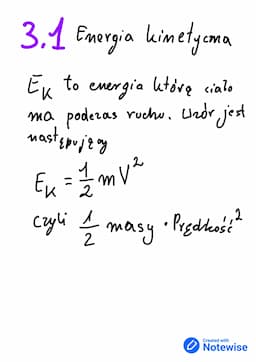 3.1 Energia kinetyczna
E_K to energia którą ciało
ma podczas ruchu. Wzór jest
następujący
E_K = 1/2 m V^2
czyli 1/2 masy · Prędkość^2
Created with
Notewise